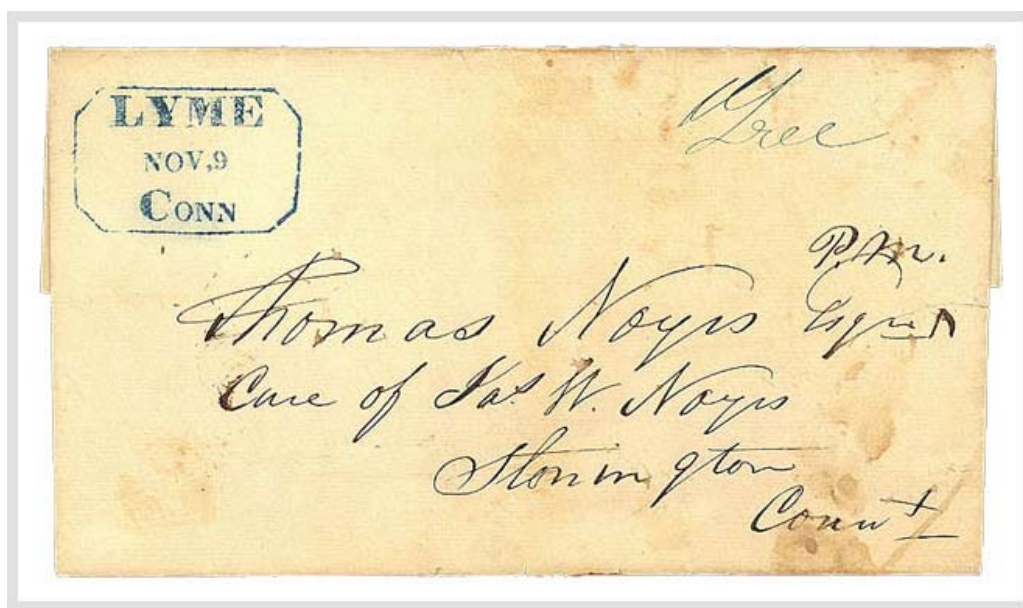 LYME
NOV,9
CONN
Free
P.M.
Thomas Noyes Esqre
Care of Jas. W. Noyes
Stonington
Connt